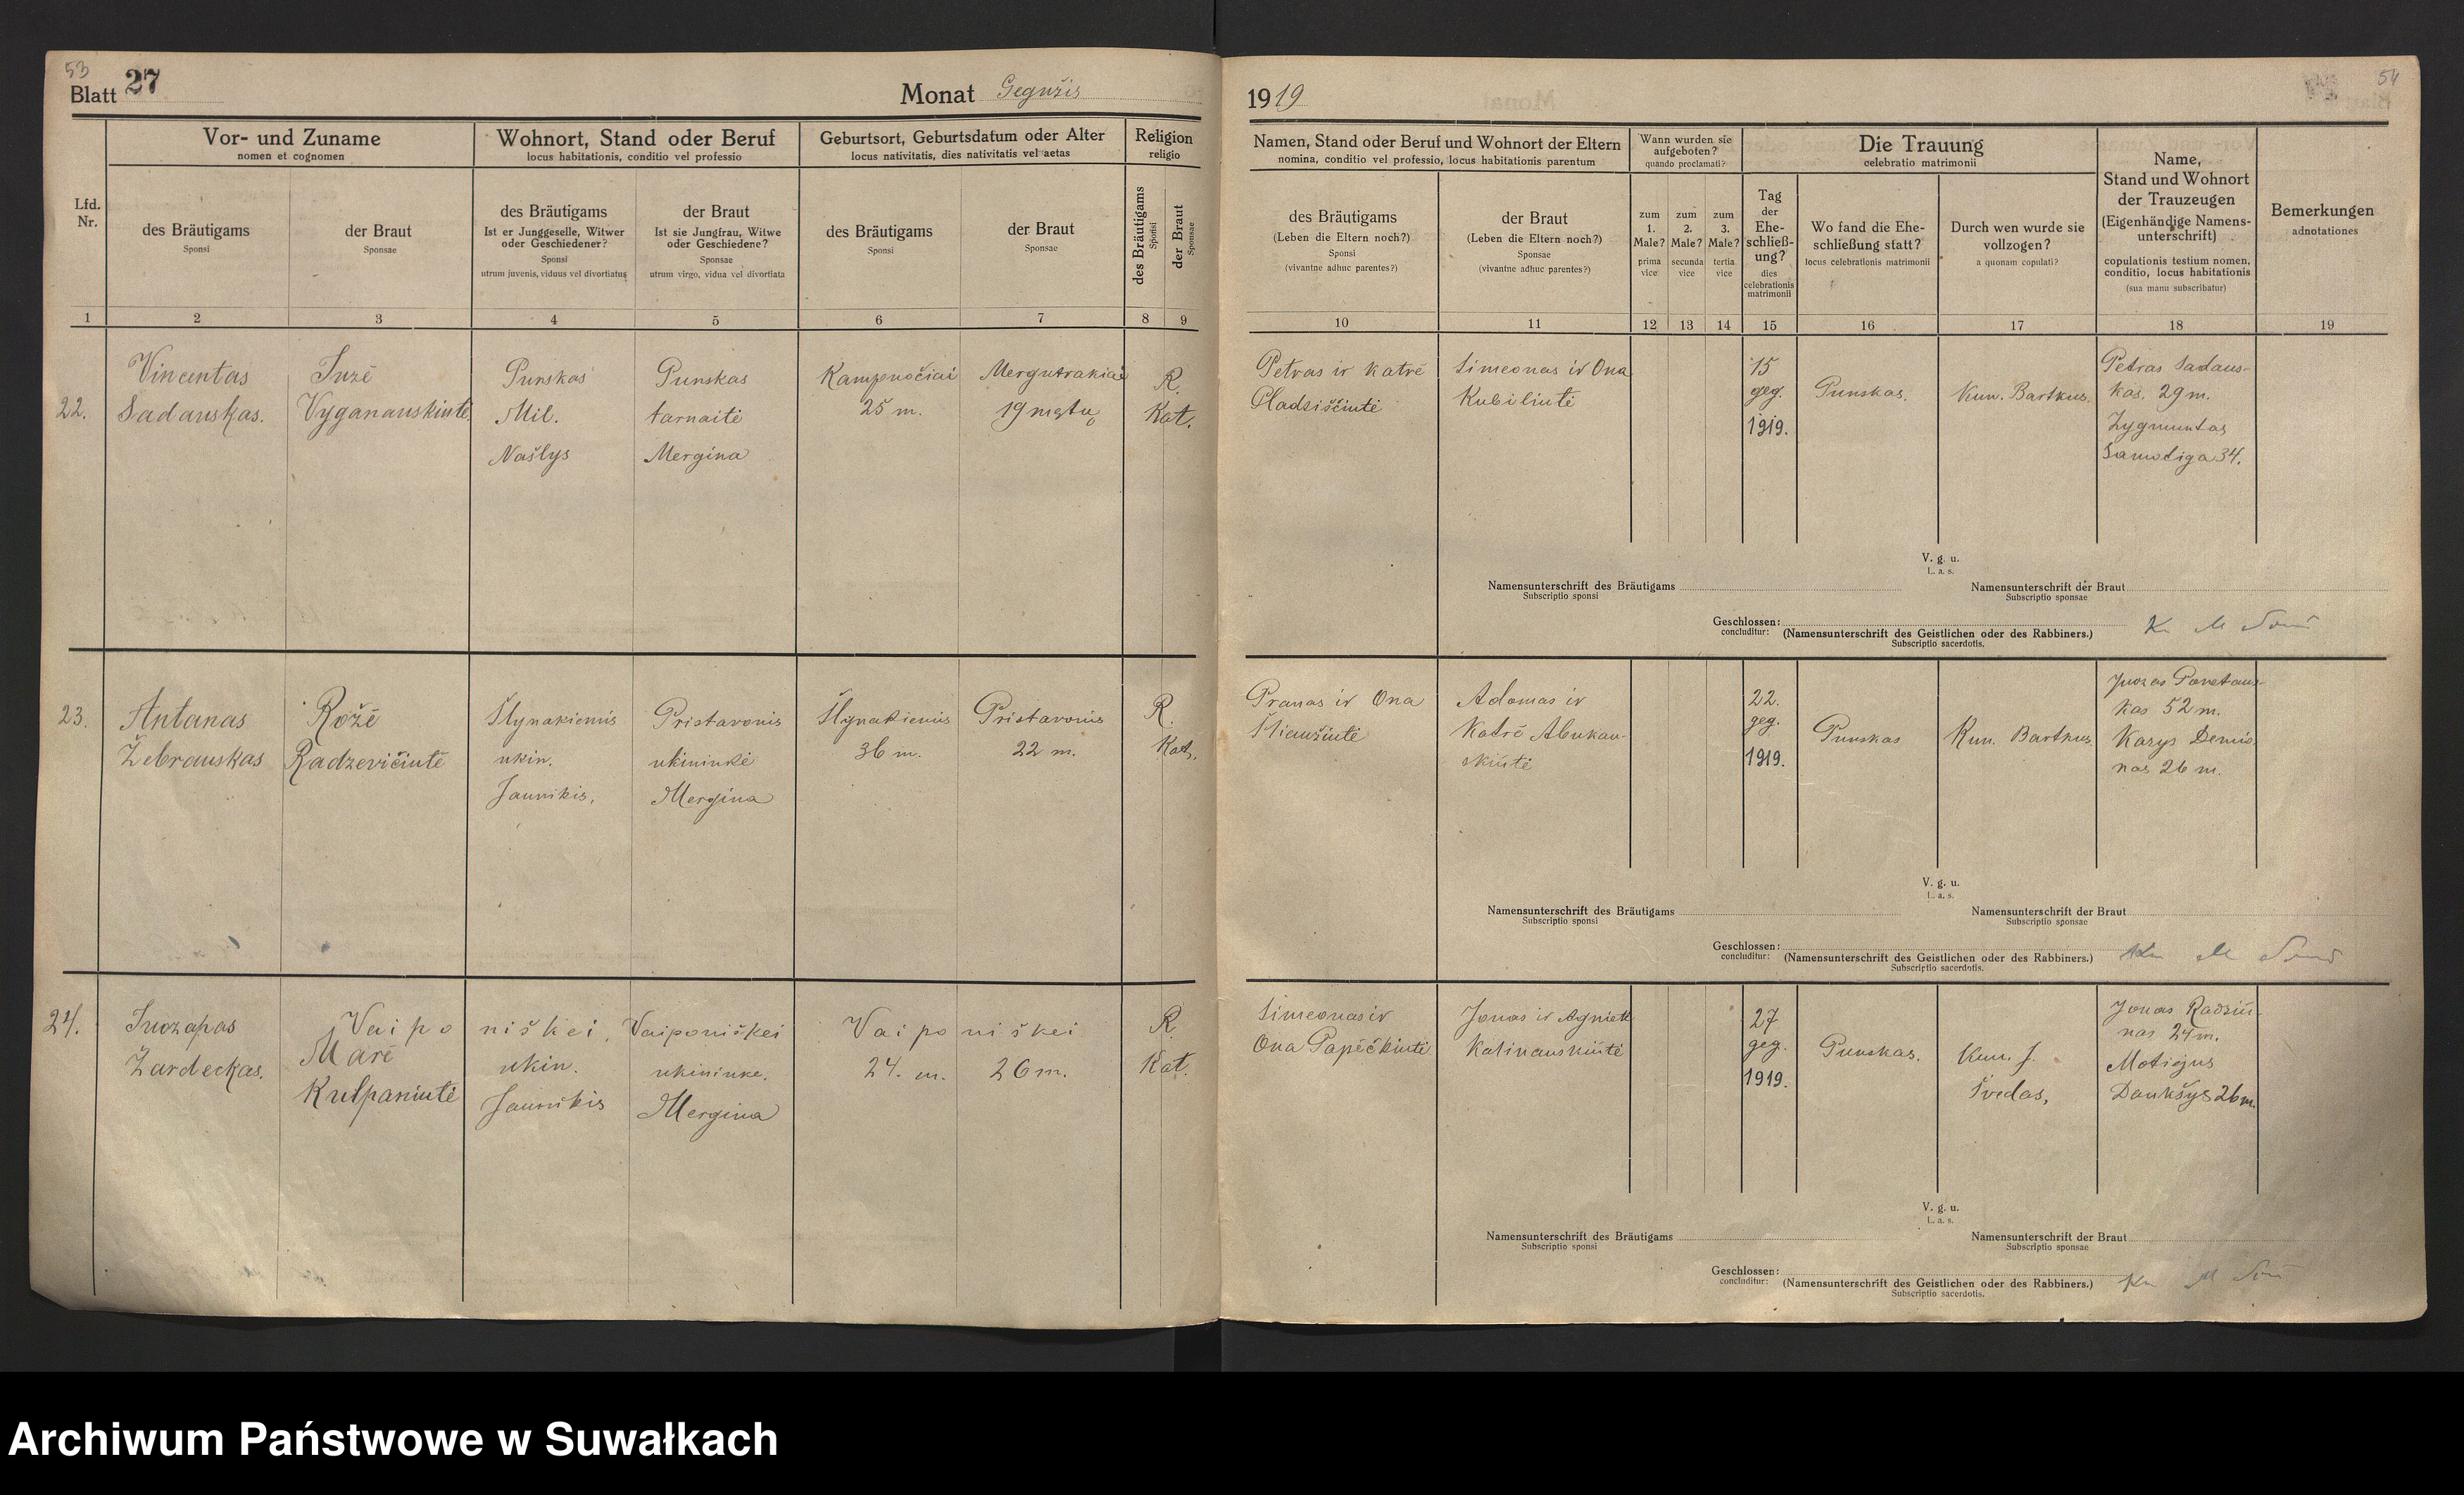 53
54
Blatt 27
Monat Gegužis
1919
Lfd. Nr.
Vor- und Zuname
nomen et cognomen
Wohnort, Stand oder Beruf
locus habitationis, conditio vel professio
Geburtsort, Geburtsdatum oder Alter
locus nativitatis, dies nativitatis vel aetas
Religion
religio
des Bräutigams
Sponsi
der Braut
Sponsae
des Bräutigams
Ist er Junggeselle, Witwer
oder Geschiedener?
Sponsi
utrum juvenis, viduus vel divortiatus
der Braut
Ist sie Jungfrau, Witwe
oder Geschiedene?
Sponsae
utrum virgo, vidua vel divortiata
des Bräutigams
Sponsi
der Braut
Sponsae
des Bräutigams
Sponsi
der Braut
Sponsae
Namen, Stand oder Beruf und Wohnort der Eltern
nomina, conditio vel professio, locus habitationis parentum
des Bräutigams
(Leben die Eltern noch?)
Sponsi
(vivantne adhuc parentes?)
der Braut
(Leben die Eltern noch?)
Sponsae
(vivantne adhuc parentes?)
Wann wurden sie
aufgeboten?
quando proclamati?
zum 1. Male?
prima vice
zum 2. Male?
secunda vice
zum 3. Male?
tertia vice
Die Trauung
celebratio matrimonii
Tag
der
Ehe-
schließ-
ung?
dies
celebrationis
matrimonii
Wo fand die Ehe-
schließung statt?
locus celebrationis matrimonii
Durch wen wurde sie
vollzogen?
a quonam copulati?
Name,
Stand und Wohnort
der Trauzeugen
(Eigenhändige Namens-
unterschrift)
copulationis testium nomen,
conditio, locus habitationis
(sua manu subscribatur)
Bemerkungen
adnotationes
1 2 3 4 5 6 7 8 9 10 11 12 13 14 15 16 17 18 19
22.
Vincentas
Sadauskas.
Juzė
Vyganauskiutė
Punskas
Mil.
Našlys
Punskas
tarnaitė
Mergina
Kampuočiai
25 m.
Mergutrakiai
19 metų
R.
Kat.
Petras ir Katrė
Gladziščiutė
Simeonas ir Ona
Kubiliutė
15
geg.
1919.
Punskas.
Kun. Bartkus.
Petras Sadaus-
kas, 29 m.
Zygmuntas
Samoliga 34.
V. g. u.
L. a. s.
Namensunterschrift des Bräutigams
Subscriptio sponsi
Namensunterschrift der Braut
Subscriptio sponsae
Geschlossen:
concluditur:
(Namensunterschrift des Geistlichen oder des Rabbiners.)
Subscriptio sacerdotis.
23.
Antanas
Žebrauskas
Rožė
Radzevičiutė
Šlynakiemis
ukin.
Jaunikis.
Pristavonis
ukininkė
Mergina
Šlynakiemis
36 m.
Pristavonis
22 m.
R.
Kat.
Pranas ir Ona
Adomas ir
Katrė Abukau-
skiutė
22.
geg.
1919.
Punskas
Kun. Bartkus
kas 52 m.
Kazys
nas 26 m.
V. g. u.
L. a. s.
Namensunterschrift des Bräutigams
Subscriptio sponsi
Namensunterschrift der Braut
Subscriptio sponsae
Geschlossen:
concluditur:
(Namensunterschrift des Geistlichen oder des Rabbiners.)
Subscriptio sacerdotis.
24.
Juozapas
Zardeckas.
Vaiponiškei
Marė
Kulpaniutė
ukin.
Jaunikis
Vaiponiškei
ukininke.
Mergina
Vaiponiškei
24. m.
26 m.
R.
Kat.
Simeonas ir
Ona Papečkiutė
Jonas ir Agniet
Kalinauskiutė
27
geg.
1919.
Punskas.
Kun. J.
Švedas,
Jonas Radziu-
nas 24 m.
Motiejus
Daukšys 26 m.
V. g. u.
L. a. s.
Namensunterschrift des Bräutigams
Subscriptio sponsi
Namensunterschrift der Braut
Subscriptio sponsae
Geschlossen:
concluditur:
(Namensunterschrift des Geistlichen oder des Rabbiners.)
Subscriptio sacerdotis.
Archiwum Państwowe w Suwałkach